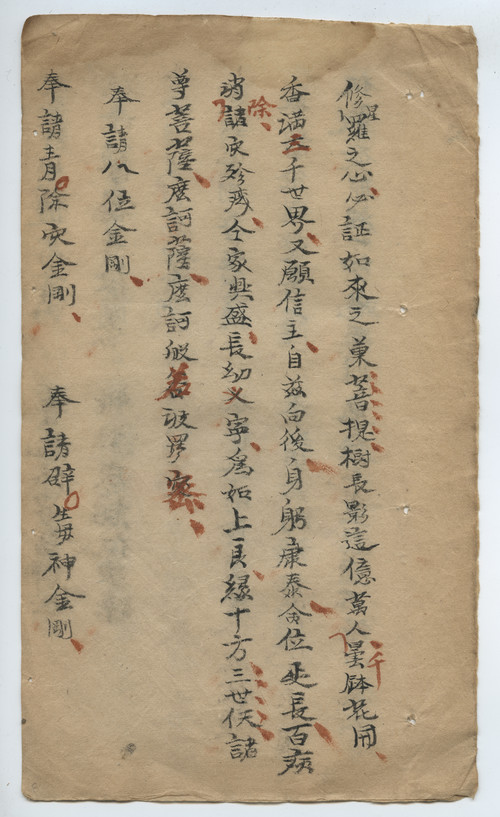 修羅之心必証如來之菓菩提樹長影這億萬人曇鉢花開
星
千
香满三千世界又願信主自兹向後身躬康泰命位延長百病
消諸灾殄殘仝家興盛長幼乂寧爲如上良緣十方三世仸諸
除
尊菩薩摩訶薩摩訶般若波罗
奉請八位金剛
奉請青除灾金剛 奉請辟毒神金剛